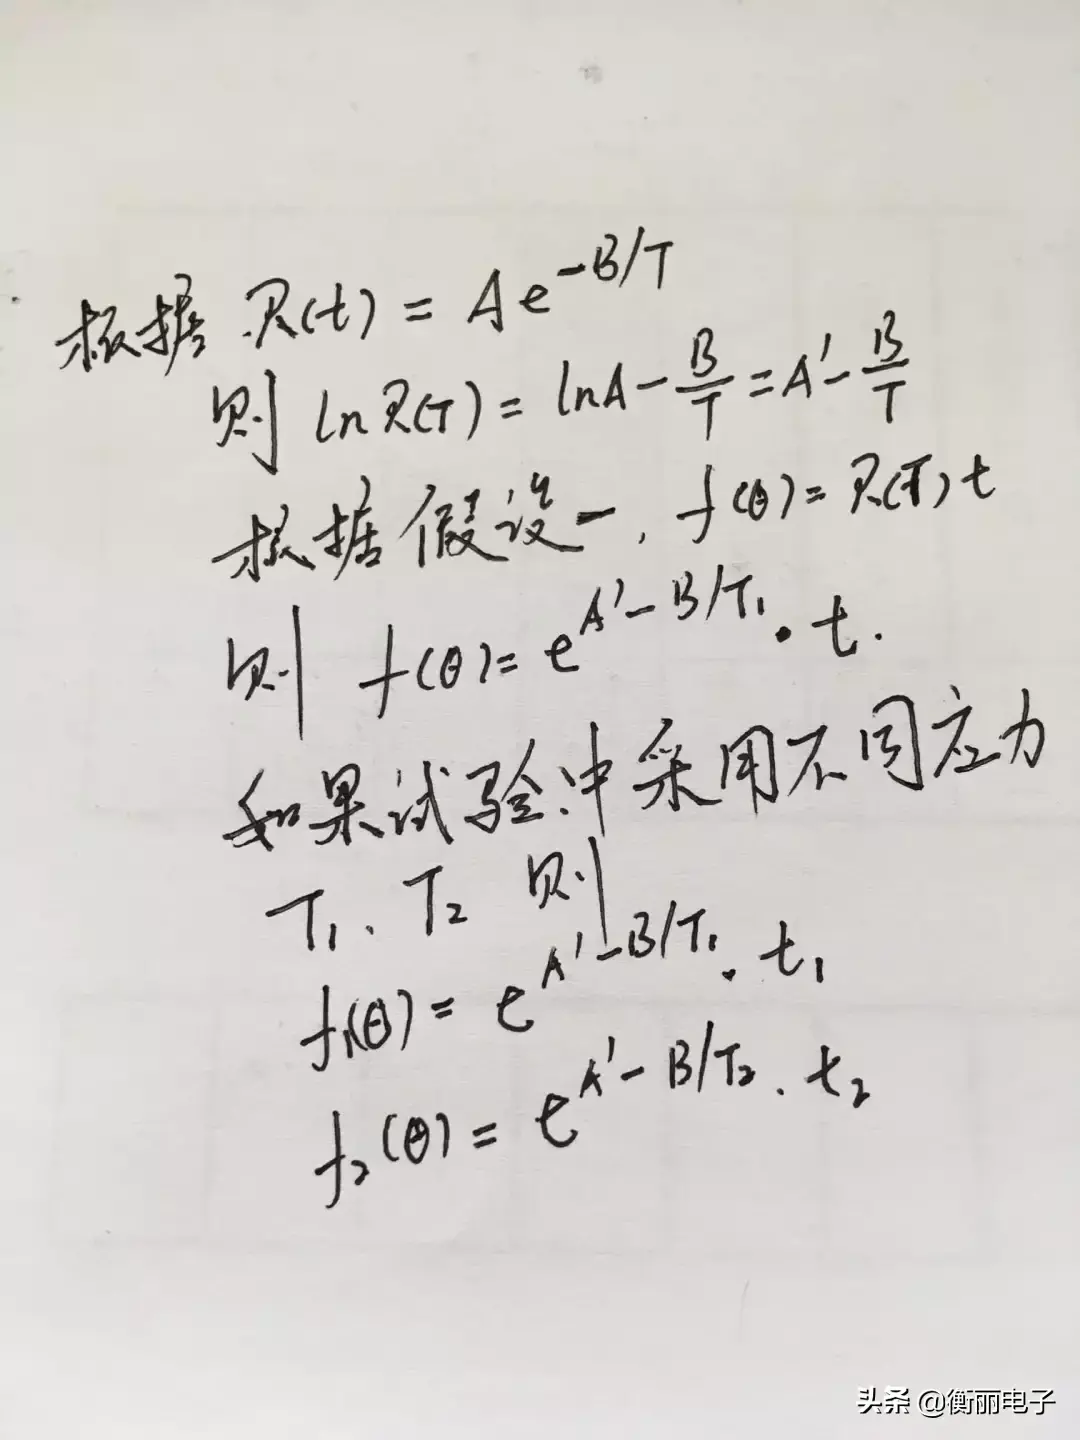 根据 R(t) = Ae^{-B/T}
则 ln R(T) = lnA - B/T = A' - B/T
根据假设一, f(θ) = R(T) t
则 f(θ) = e^{A' - B/T₁} · t.
如果试验中采用不同应力
T₁、T₂ 则
f₁(θ) = e^{A' - B/T₁} · t₁
f₂(θ) = e^{A' - B/T₂} · t₂
头条 @衡丽电子